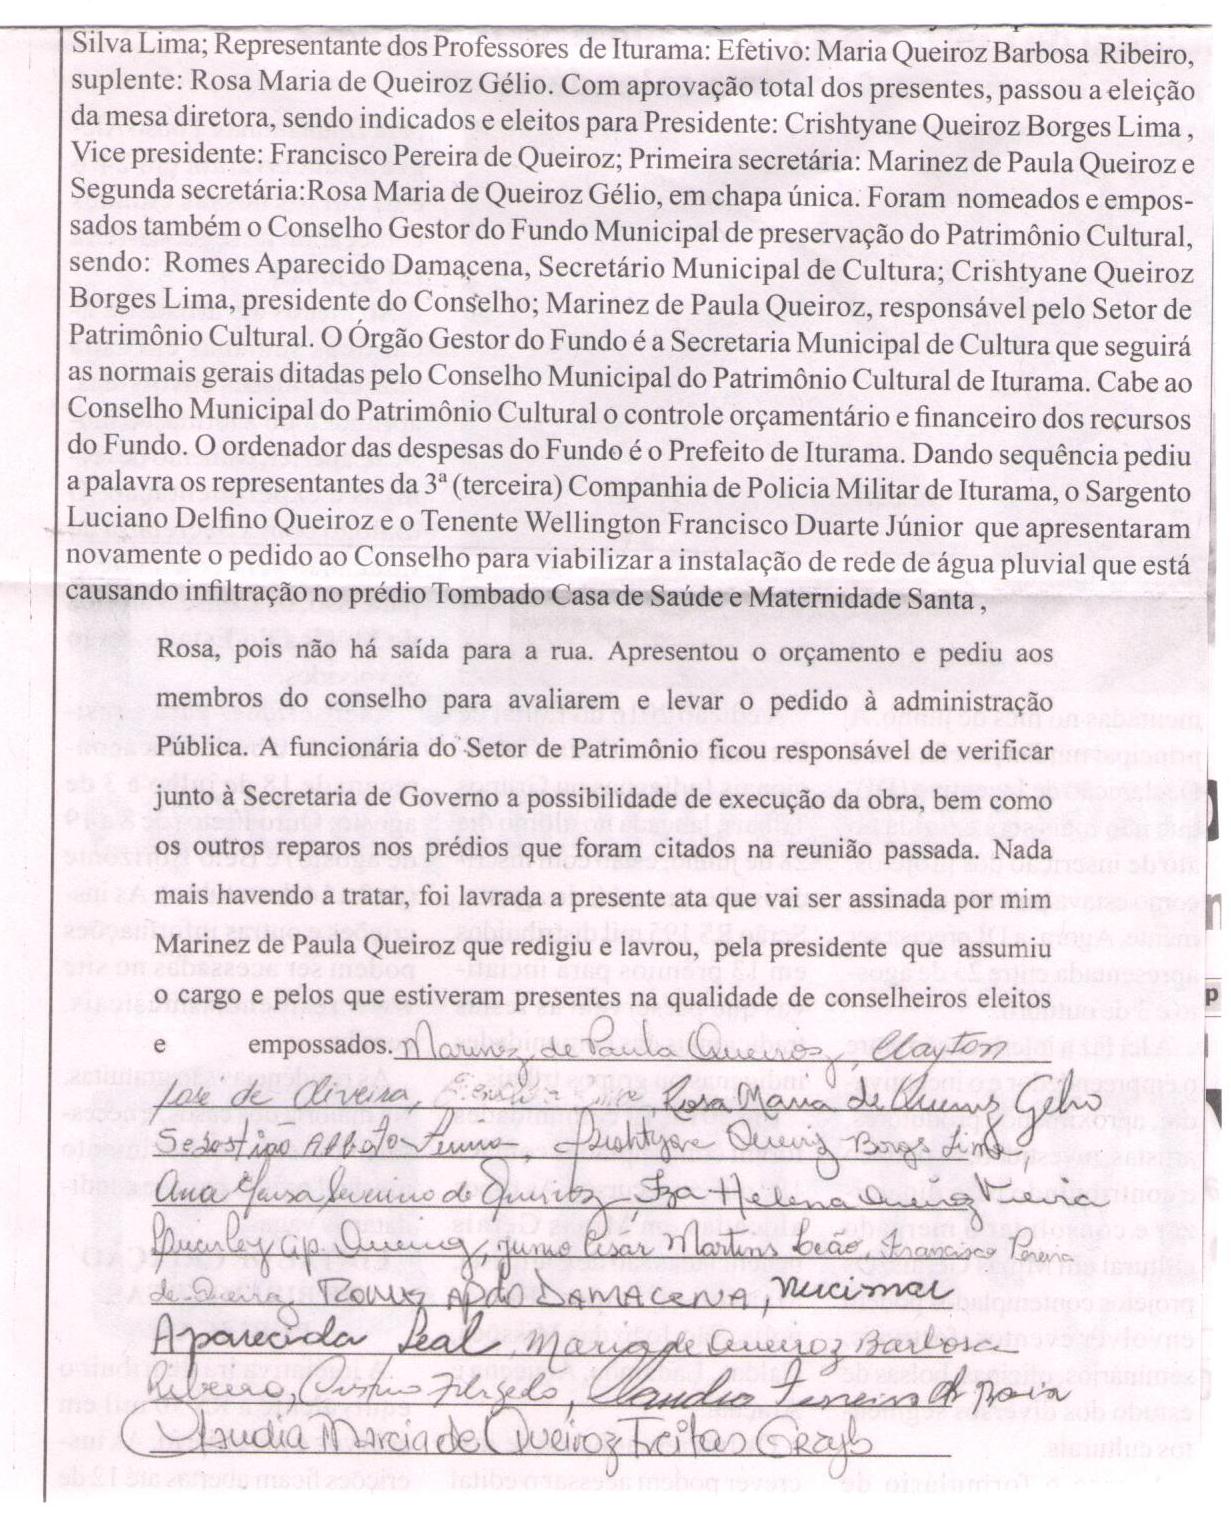 Silva Lima; Representante dos Professores de Iturama: Efetivo: Maria Queiroz Barbosa Ribeiro,
suplente: Rosa Maria de Queiroz Gélio. Com aprovação total dos presentes, passou a eleição
da mesa diretora, sendo indicados e eleitos para Presidente: Crishtyane Queiroz Borges Lima ,
Vice presidente: Francisco Pereira de Queiroz; Primeira secretária: Marinez de Paula Queiroz e
Segunda secretária:Rosa Maria de Queiroz Gélio, em chapa única. Foram nomeados e empos-
sados também o Conselho Gestor do Fundo Municipal de preservação do Patrimônio Cultural,
sendo: Romes Aparecido Damacena, Secretário Municipal de Cultura; Crishtyane Queiroz
Borges Lima, presidente do Conselho; Marinez de Paula Queiroz, responsável pelo Setor de
Patrimônio Cultural. O Órgão Gestor do Fundo é a Secretaria Municipal de Cultura que seguirá
as normais gerais ditadas pelo Conselho Municipal do Patrimônio Cultural de Iturama. Cabe ao
Conselho Municipal do Patrimônio Cultural o controle orçamentário e financeiro dos recursos
do Fundo. O ordenador das despesas do Fundo é o Prefeito de Iturama. Dando sequência pediu
a palavra os representantes da 3ª (terceira) Companhia de Policia Militar de Iturama, o Sargento
Luciano Delfino Queiroz e o Tenente Wellington Francisco Duarte Júnior que apresentaram
novamente o pedido ao Conselho para viabilizar a instalação de rede de água pluvial que está
causando infiltração no prédio Tombado Casa de Saúde e Maternidade Santa ,
Rosa, pois não há saída para a rua. Apresentou o orçamento e pediu aos
membros do conselho para avaliarem e levar o pedido à administração
Pública. A funcionária do Setor de Patrimônio ficou responsável de verificar
junto à Secretaria de Governo a possibilidade de execução da obra, bem como
os outros reparos nos prédios que foram citados na reunião passada. Nada
mais havendo a tratar, foi lavrada a presente ata que vai ser assinada por mim
Marinez de Paula Queiroz que redigiu e lavrou, pela presidente que assumiu
o cargo e pelos que estiveram presentes na qualidade de conselheiros eleitos
e empossados. Marinez de Paula Queiroz, Clayton
José de Oliveira, Rosa Maria de Queiroz Gélio
Sebastião Alberto Crishtyane Queiroz Borges Lima,
Ana Severino de Queiroz, Iza Helena Queiroz Vieira
Ap. Queiroz, Junio César Martins Leão, Francisco Pereira
de Queiroz Romes Apdo DAMACENA, Nucimar
Aparecida Leal, Maria de Queiroz Barbosa
Ribeiro, Claudio Ferreira
Claudia Marcia de Queiroz Freitas